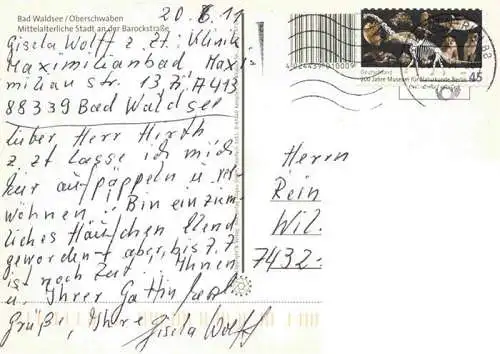 Bad Waldsee / Oberschwaben
Mittelalterliche Stadt an der Barockstraße
20. 6. 11
Gisela Wolff z. Zt. Klinik
Maximilianbad Maxi
milian str. 13, Z. A413
88339 Bad Waldsee
Lieber Herr Hirth
z. Zt lasse ich mich
hier aufpäppeln u. ver-
wöhnen. Bin ein ziem
liches Häufchen Elend
geworden - aber, bis 7.7.
ist noch Zeit. Ihnen
u. Ihrer Gattin
Grüße, Ihre
Gisela Wolff
4024439010009
Deutschland
200 Jahre Museum für Naturkunde Berlin
45
Herrn
Rein
Wil.
7432-